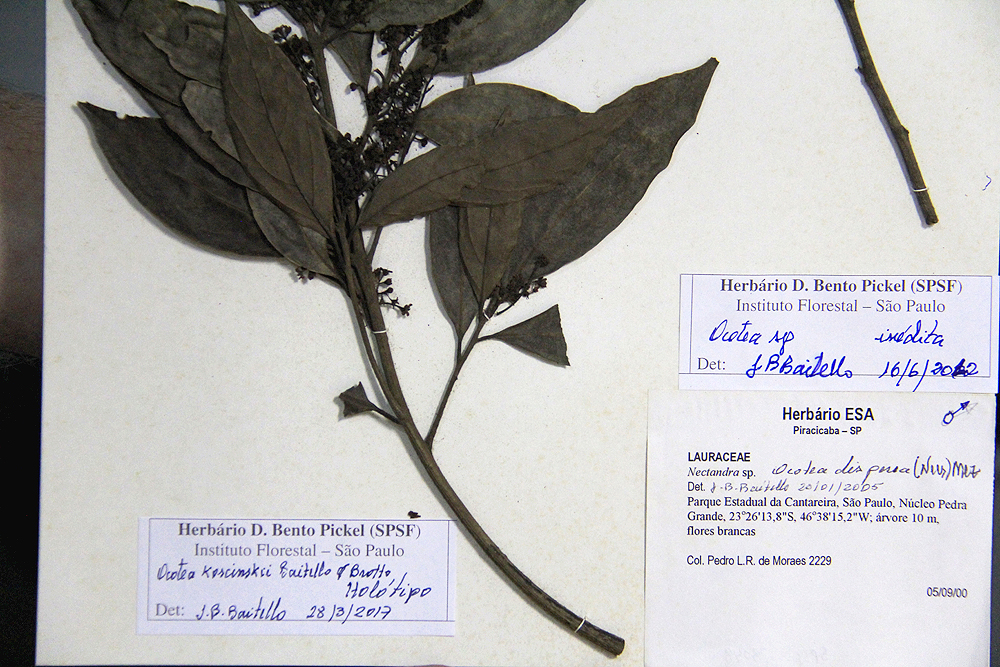 Herbário D. Bento Pickel (SPSF)
Instituto Florestal – São Paulo
Ocotea sp inédita
Det: J B Baitello 16/6/2012
Herbário ESA
Piracicaba – SP
LAURACEAE
Nectandra sp. Ocotea dispersa (Nees) Mez
Det. J.B. Baitello 20/01/2005
Parque Estadual da Cantareira, São Paulo, Núcleo Pedra
Grande, 23°26'13,8"S, 46°38'15,2"W; árvore 10 m,
flores brancas
Col. Pedro L.R. de Moraes 2229
05/09/00
Herbário D. Bento Pickel (SPSF)
Instituto Florestal – São Paulo
Ocotea koscinskii Baitello & Brotto
Holótipo
Det: J.B. Baitello 28/3/2017